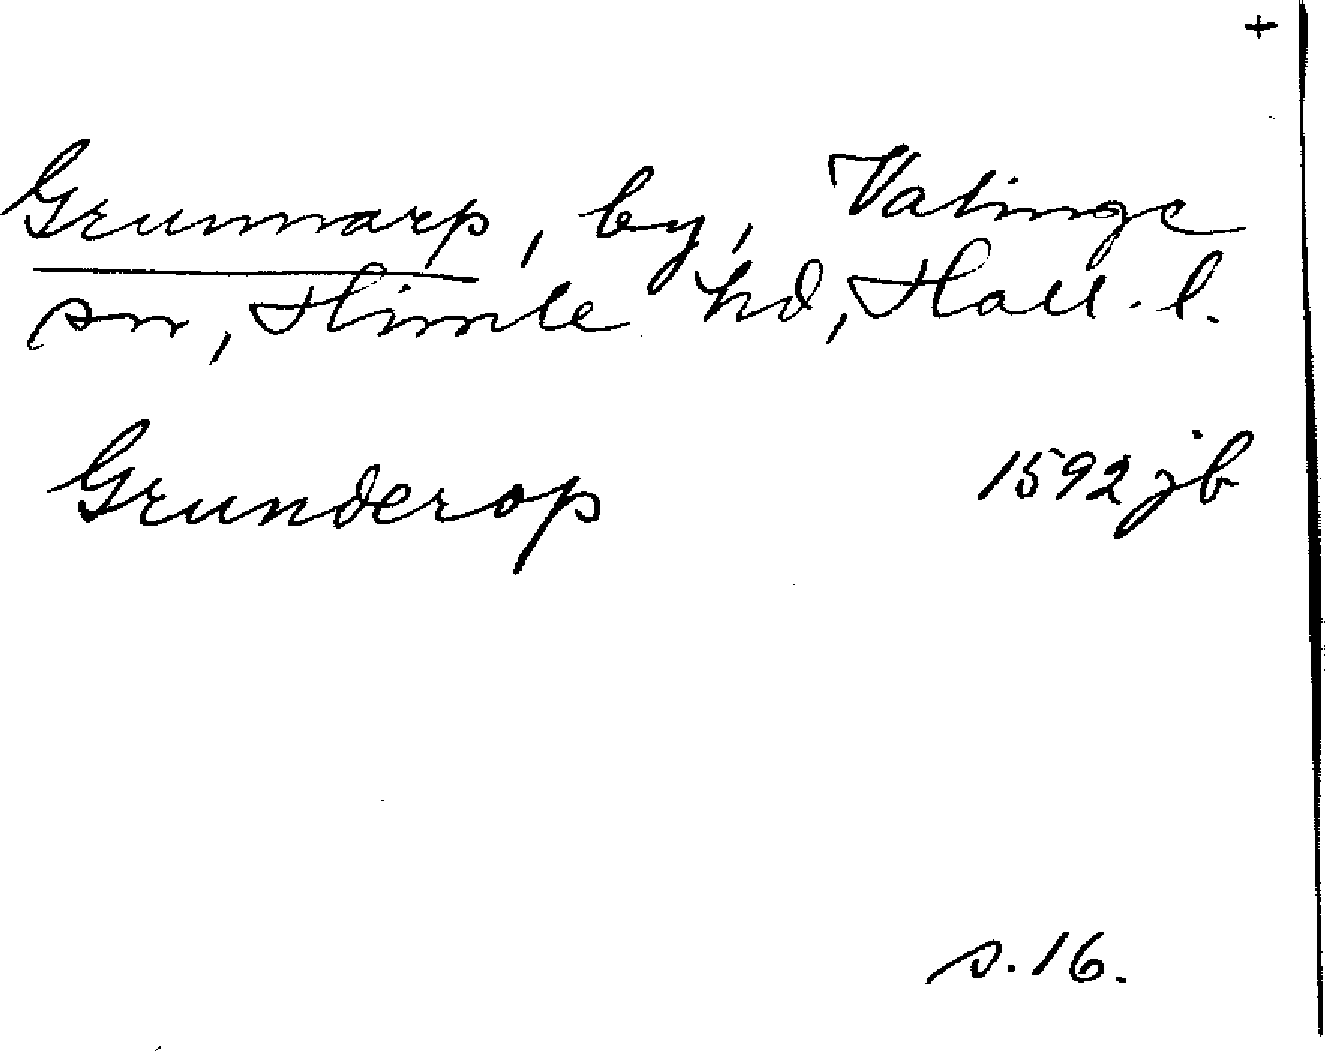 +
Grunnarp, by, Valinge
sn, Himle hd, Hall. l.
Grunderop 1592 jb
s. 16.